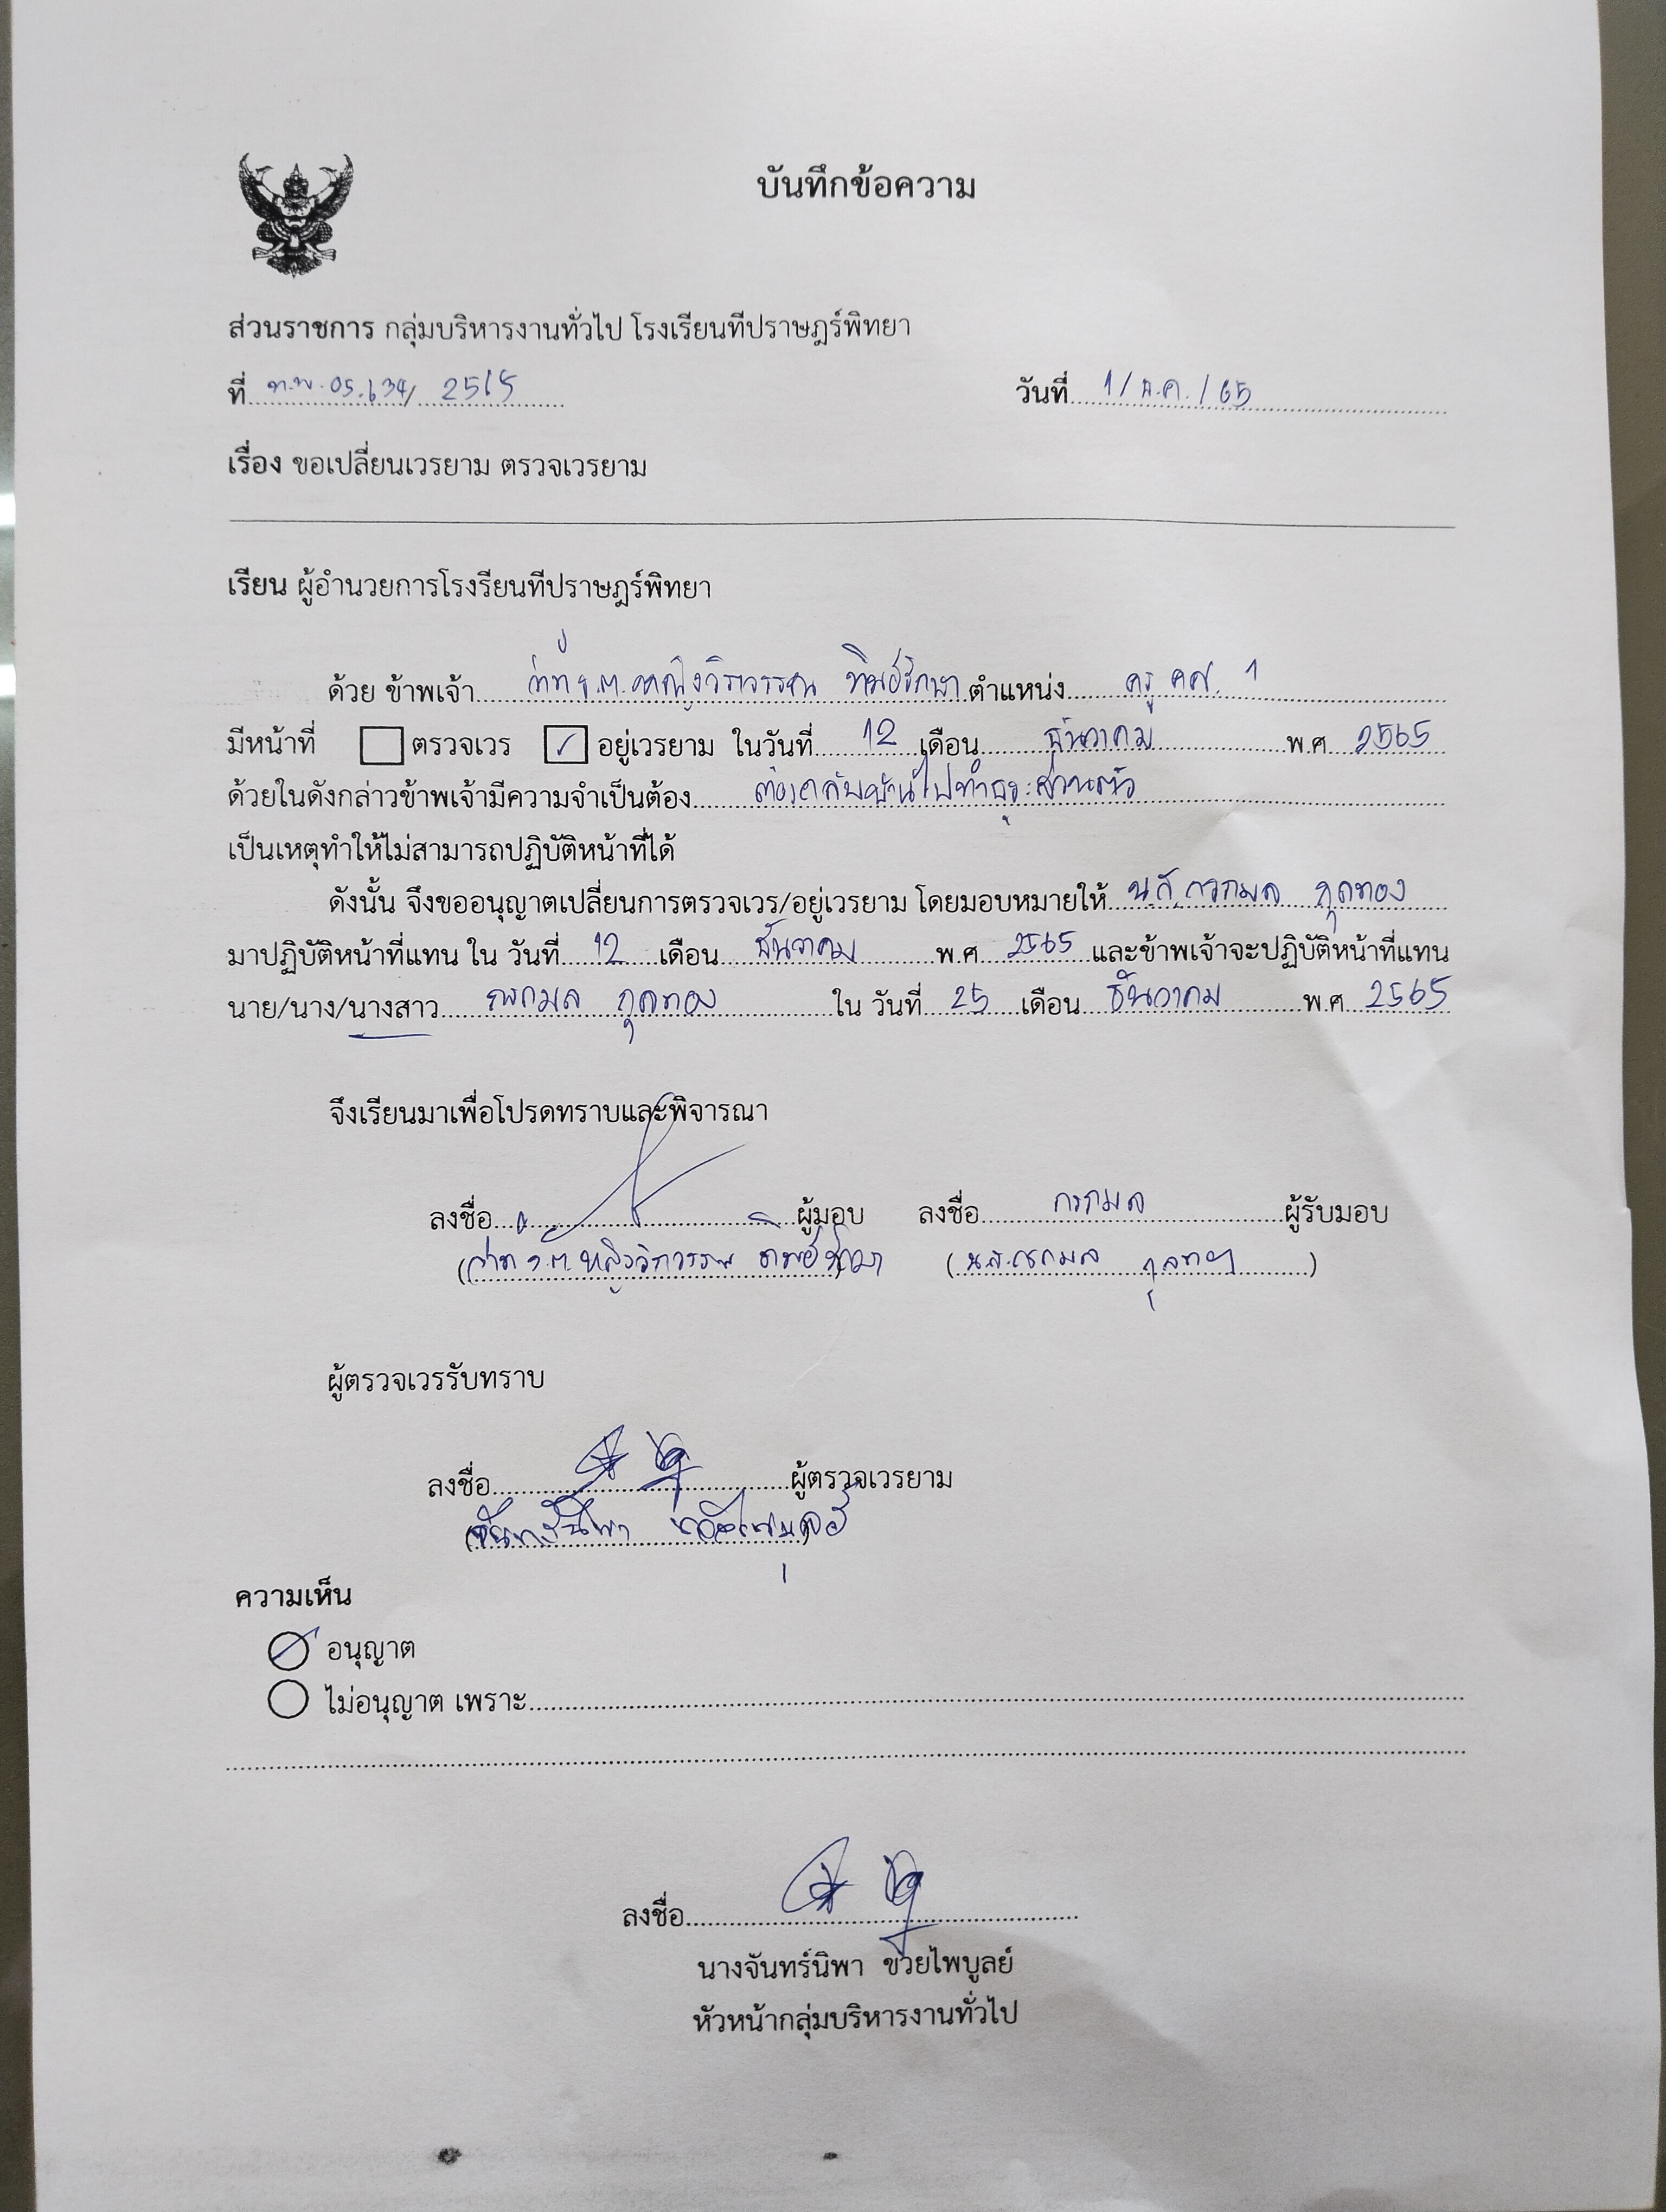 บันทึกข้อความ
ส่วนราชการ กลุ่มบริหารงานทั่วไป โรงเรียนทีปราษฎร์พิทยา
ที่ ท.พ. 05.634/ 2565 วันที่ 1/ธ.ค./65
เรื่อง ขอเปลี่ยนเวรยาม ตรวจเวรยาม
เรียน ผู้อำนวยการโรงรียนทีปราษฎร์พิทยา
ด้วย ข้าพเจ้า ว่าที่ ร.ต.หญิงวิราวรรณ ทิพย์รักษา ตำแหน่ง ครู คศ. 1
มีหน้าที่ ตรวจเวร อยู่เวรยาม ในวันที่ 12 เดือน ธันวาคม พ.ศ 2565
ด้วยในดังกล่าวข้าพเจ้ามีความจำเป็นต้อง ต้องกลับบ้านไปทำธุระส่วนตัว
เป็นเหตุทำให้ไม่สามารถปฏิบัติหน้าที่ได้
ดังนั้น จึงขออนุญาตเปลี่ยนการตรวจเวร/อยู่เวรยาม โดยมอบหมายให้ น.ส.กรกมล กุลทอง
มาปฏิบัติหน้าที่แทน ใน วันที่ 12 เดือน ธันวาคม พ.ศ 2565 และข้าพเจ้าจะปฏิบัติหน้าที่แทน
นาย/นาง/นางสาว กรกมล กุลทอง ใน วันที่ 25 เดือน ธันวาคม พ.ศ 2565
จึงเรียนมาเพื่อโปรดทราบและพิจารณา
ลงชื่อ ผู้มอบ ลงชื่อ กรกมล ผู้รับมอบ
(ว่าที่ ร.ต.หญิงวิราวรรณ ทิพย์รักษา) (น.ส.กรกมล กุลทอง)
ผู้ตรวจเวรรับทราบ
ลงชื่อ ผู้ตรวจเวรยาม
(จันทร์นิพา ช่วยไพบูลย์)
ความเห็น
อนุญาต
ไม่อนุญาต เพราะ
ลงชื่อ
นางจันทร์นิพา ช่วยไพบูลย์
หัวหน้ากลุ่มบริหารงานทั่วไป